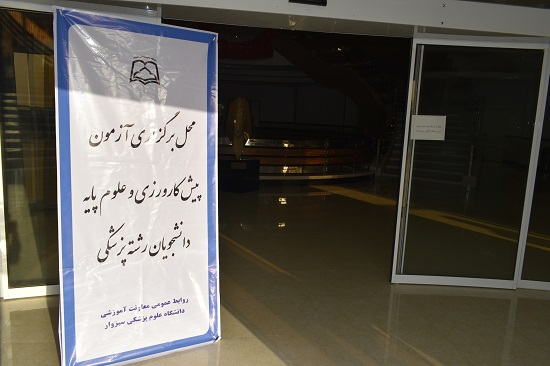 محل برگزاری آزمون
پیش کارورزی و علوم پایه
دانشجویان رشته پزشکی
روابط عمومی معاونت آموزشی
دانشگاه علوم پزشکی سبزوار